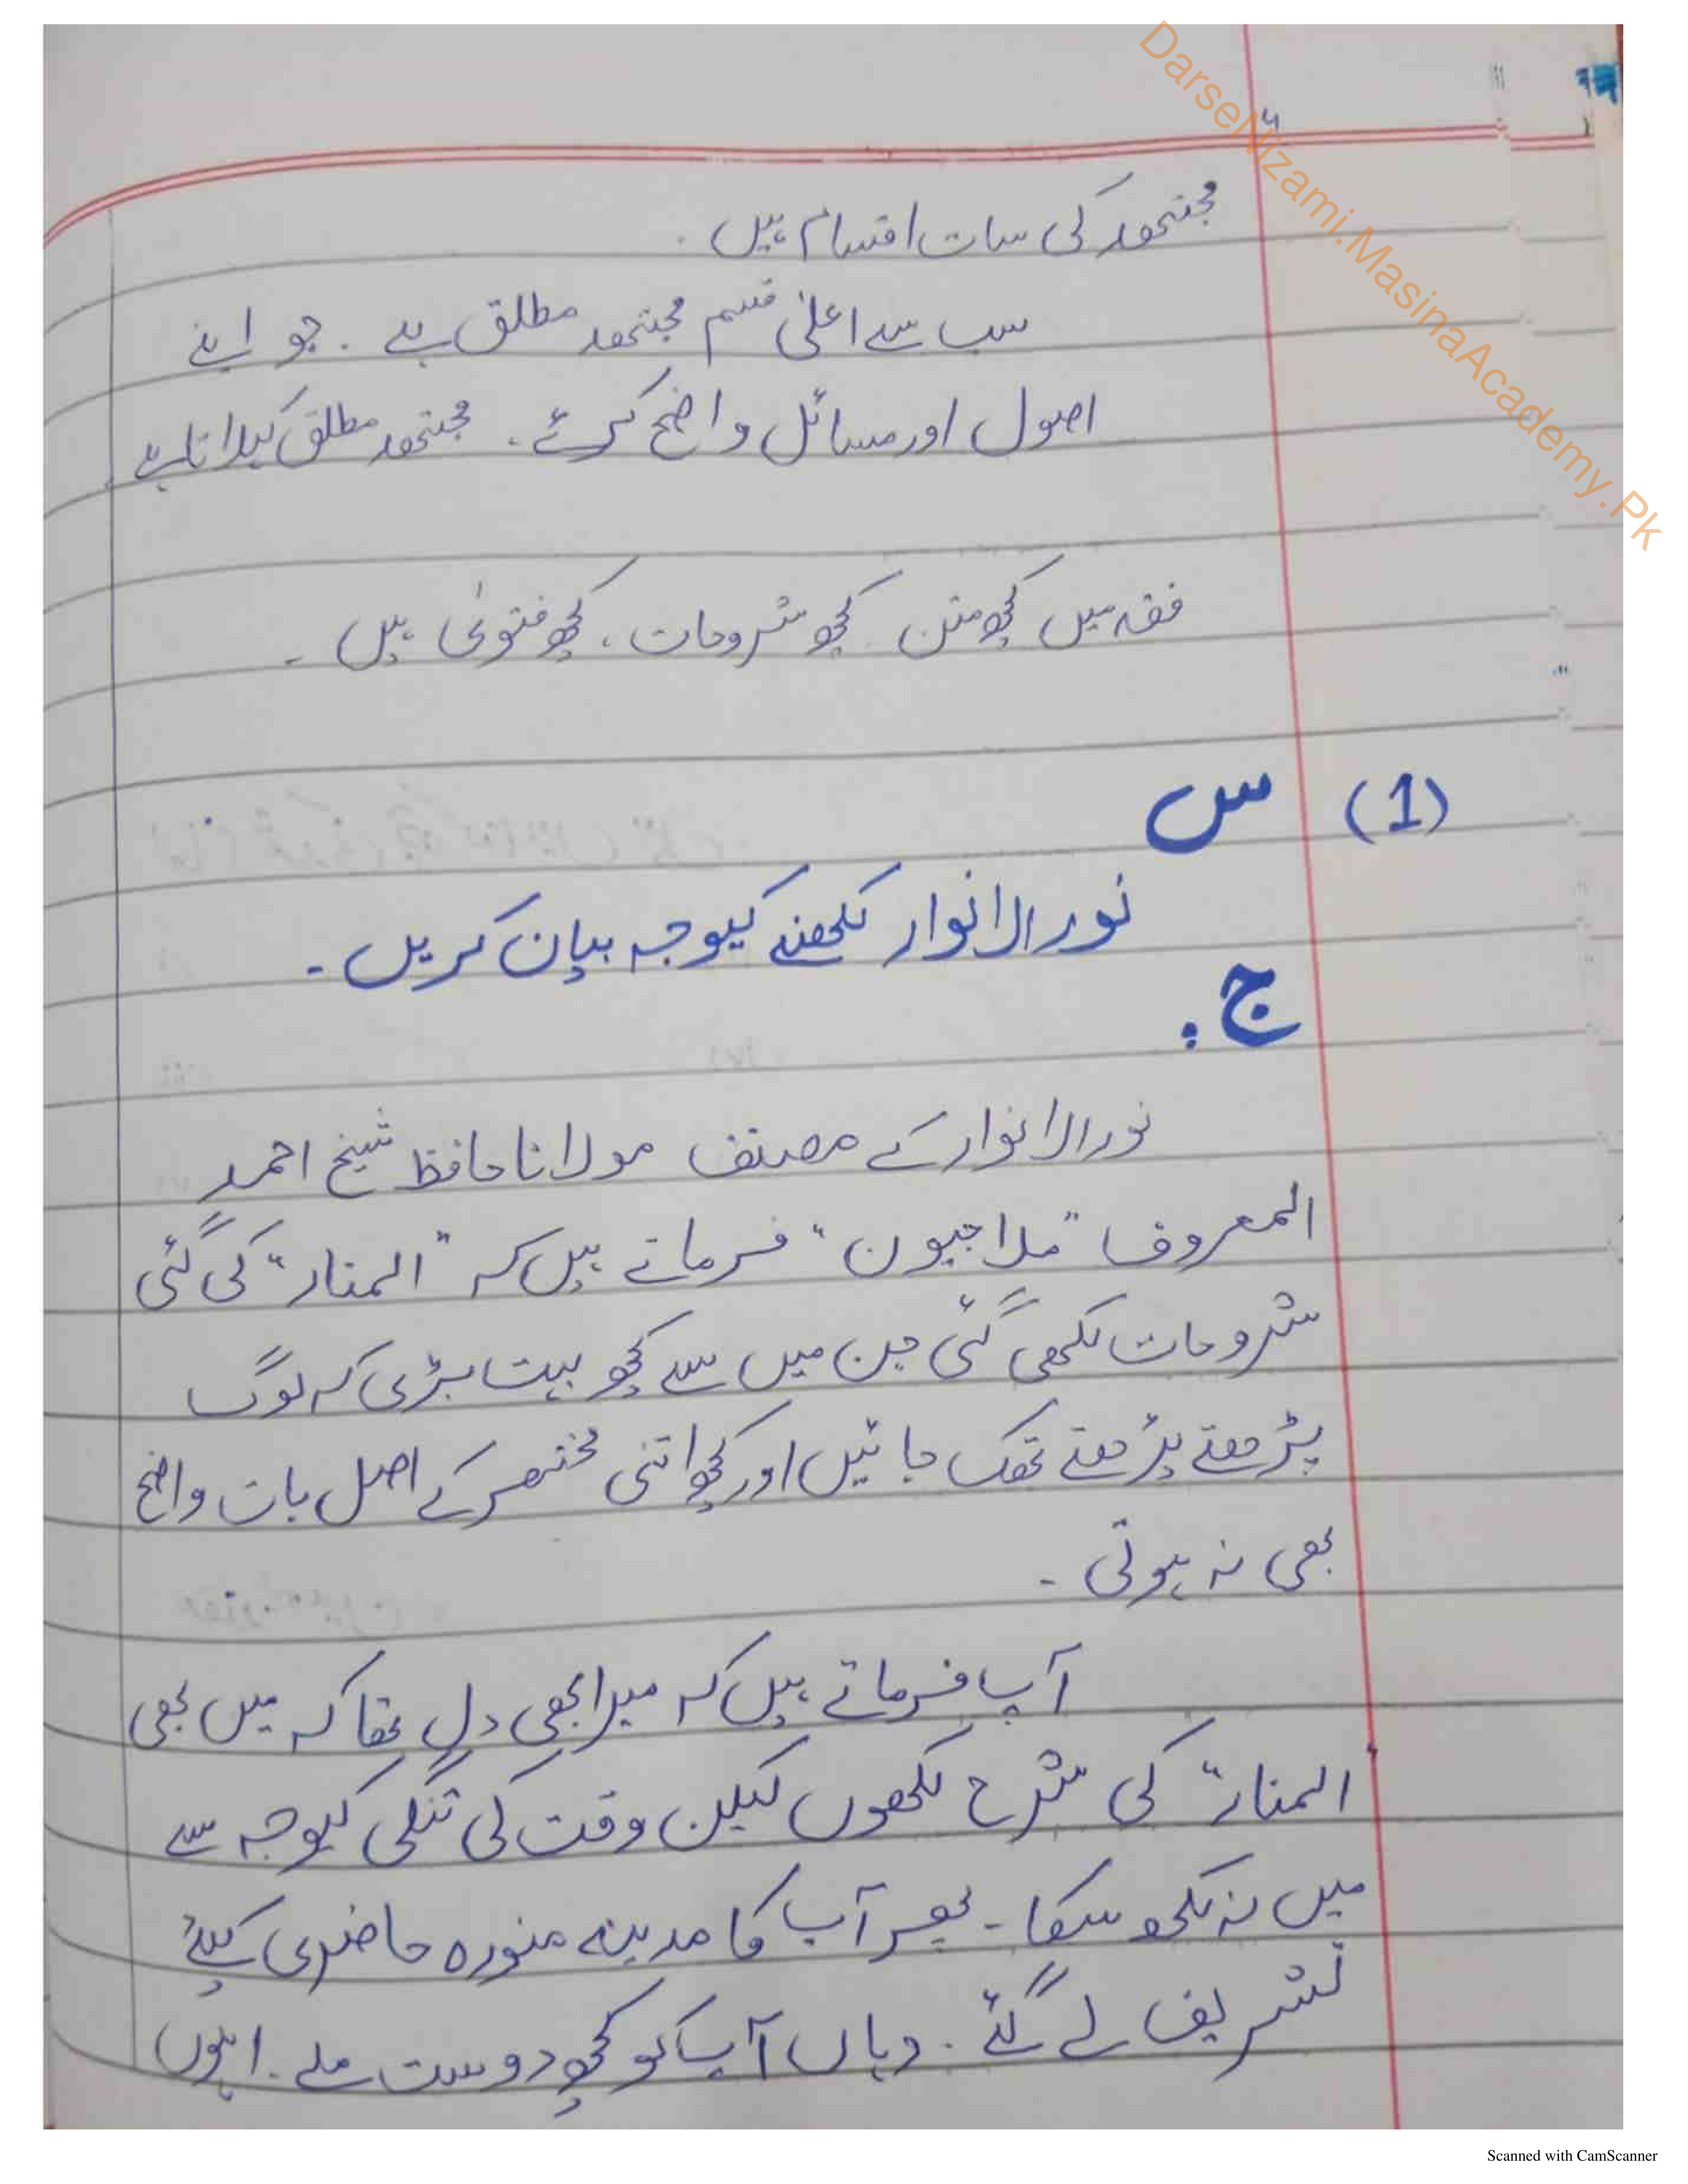 DarseNizami.MasinaAcademy.Pk
مجتھد کی سات اقسام ہیں .
سب سے اعلیٰ قسم مجتھد مطلق ہے . جو اپنے
اصول اور مسائل واضح کرئے . مجتھد مطلق کہلاتا ہے
فقہ میں کچھ متن کچھ شروحات ، کچھ فتویٰ ہیں ۔
(1) س
نور الانوار لکھنے کیوجہ بیان کریں ۔
ج :
نور الانوار کے مصنف مولانا حافظ شیخ احمد
المعروف "ملا جیون" فرماتے ہیں کہ "المنار" کی گئی
شروحات لکھی گئی جن میں سے کچھ بہت بڑی کہ لوگ
پڑھتے پڑھتے تھک جائیں اور کچھ اتنی مختصر کے اصل بات واضح
بھی نہ ہوتی ۔
آپ فرماتے ہیں کہ میرا بھی دل تھا کہ میں بھی
المنار" کی شرح لکھوں لیکن وقت کی تنگی کیوجہ سے
میں نہ لکھ سکا ۔ پھر آپ کا مدینہ منورہ حاضری کیلئے
تشریف لے گئے . وہاں آپ کو کچھ دوست ملے . انہوں
Scanned with CamScanner